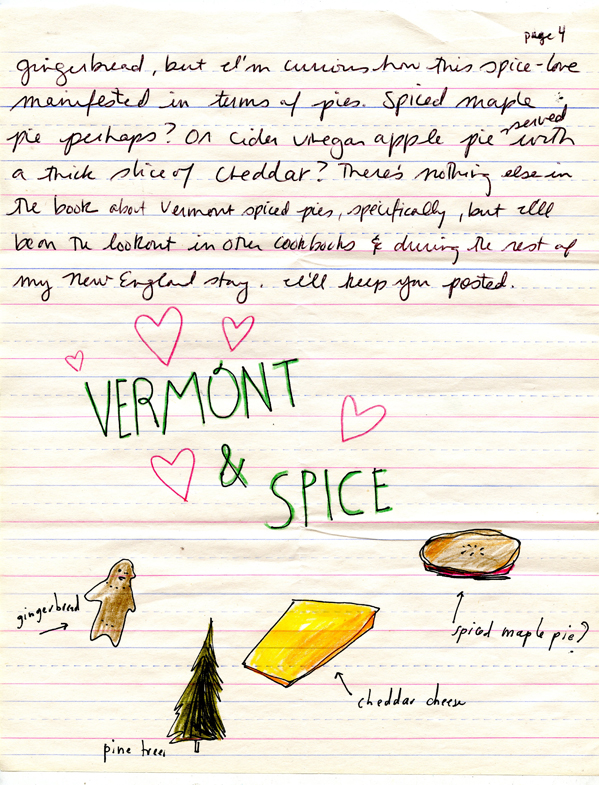 page 4
gingerbread, but I'm curious how this spice-love
manifested in terms of pies. Spiced maple
pie perhaps? Or cider vinegar apple pie served with
a thick slice of cheddar? There's nothing else in
the book about Vermont spiced pies, specifically, but I'll
be on the lookout in other cookbooks & during the rest of
my New England stay. I'll keep you posted.
VERMONT
&
SPICE
gingerbread
spiced maple pie?
cheddar cheese
pine trees